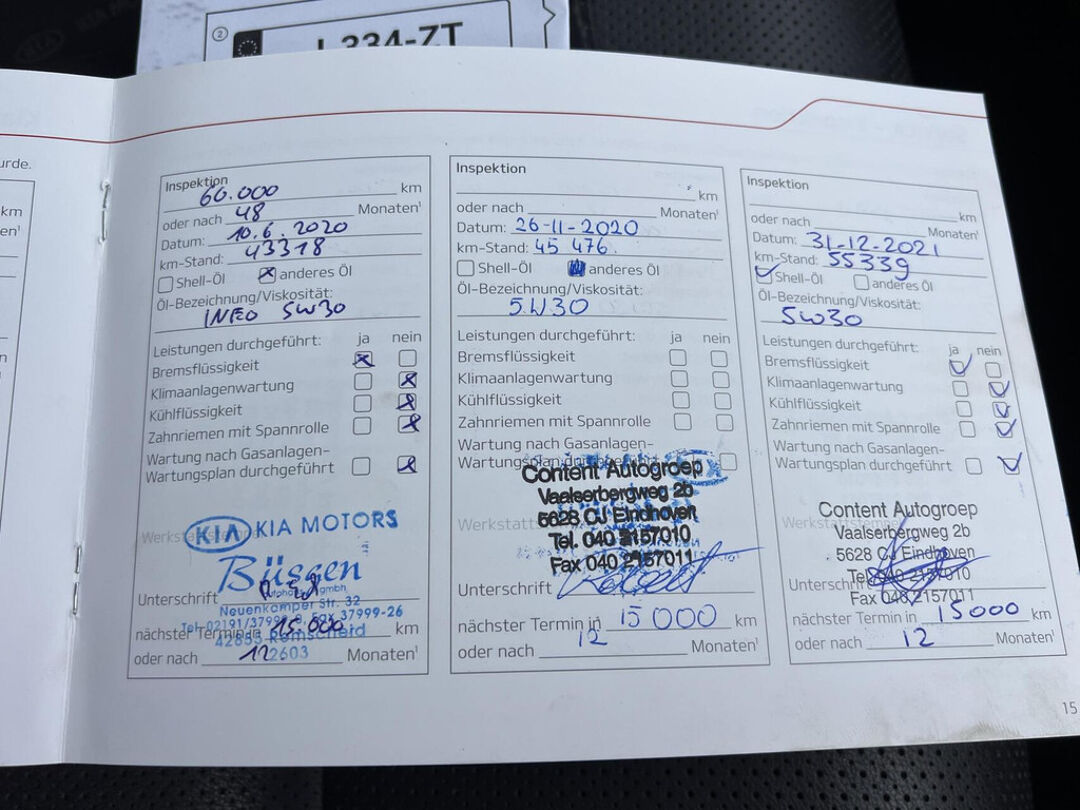 2
L-334-ZT
KIA
urde.
km
en¹
n
Inspektion
60.000 km
oder nach 48 Monaten¹
Datum: 10.6.2020
km-Stand: 43318
Shell-Öl anderes Öl
Öl-Bezeichnung/Viskosität:
INEO 5W30
Leistungen durchgeführt: ja nein
Bremsflüssigkeit
Klimaanlagenwartung
Kühlflüssigkeit
Zahnriemen mit Spannrolle
Wartung nach Gasanlagen-
Wartungsplan durchgeführt
Werkstattstempel
KIA KIA MOTORS
Büssen
Autohaus gmbh
Unterschrift
Neuenkamper Str. 32
Fax 37999-26
42855 Remscheid
nächster Termin in 15.000 km
oder nach 12 Monaten¹
2603
Inspektion
km
oder nach Monaten¹
Datum: 26-11-2020
km-Stand: 45 476.
Shell-Öl anderes Öl
Öl-Bezeichnung/Viskosität:
5W30
Leistungen durchgeführt: ja nein
Bremsflüssigkeit
Klimaanlagenwartung
Kühlflüssigkeit
Zahnriemen mit Spannrolle
Wartung nach Gasanlagen-
Wartungsplan durchgeführt
Content Autogroep
Vaalserbergweg 2b
Werkstatt
5628 CJ Eindhoven
Tel. 040 2157010
Fax 040 2157011
Unterschrift
nächster Termin in 15 000 km
oder nach 12 Monaten¹
Inspektion
km
oder nach Monaten¹
Datum: 31-12-2021
km-Stand: 55339
Shell-Öl anderes Öl
Öl-Bezeichnung/Viskosität:
5W30
Leistungen durchgeführt: ja nein
Bremsflüssigkeit
Klimaanlagenwartung
Kühlflüssigkeit
Zahnriemen mit Spannrolle
Wartung nach Gasanlagen-
Wartungsplan durchgeführt
Content Autogroep
Werkstattstempel
Vaalserbergweg 2b
5628 CJ Eindhoven
Tel. 040 2157010
Unterschrift
Fax 040 2157011
nächster Termin in 15000 km
oder nach 12 Monaten¹
15